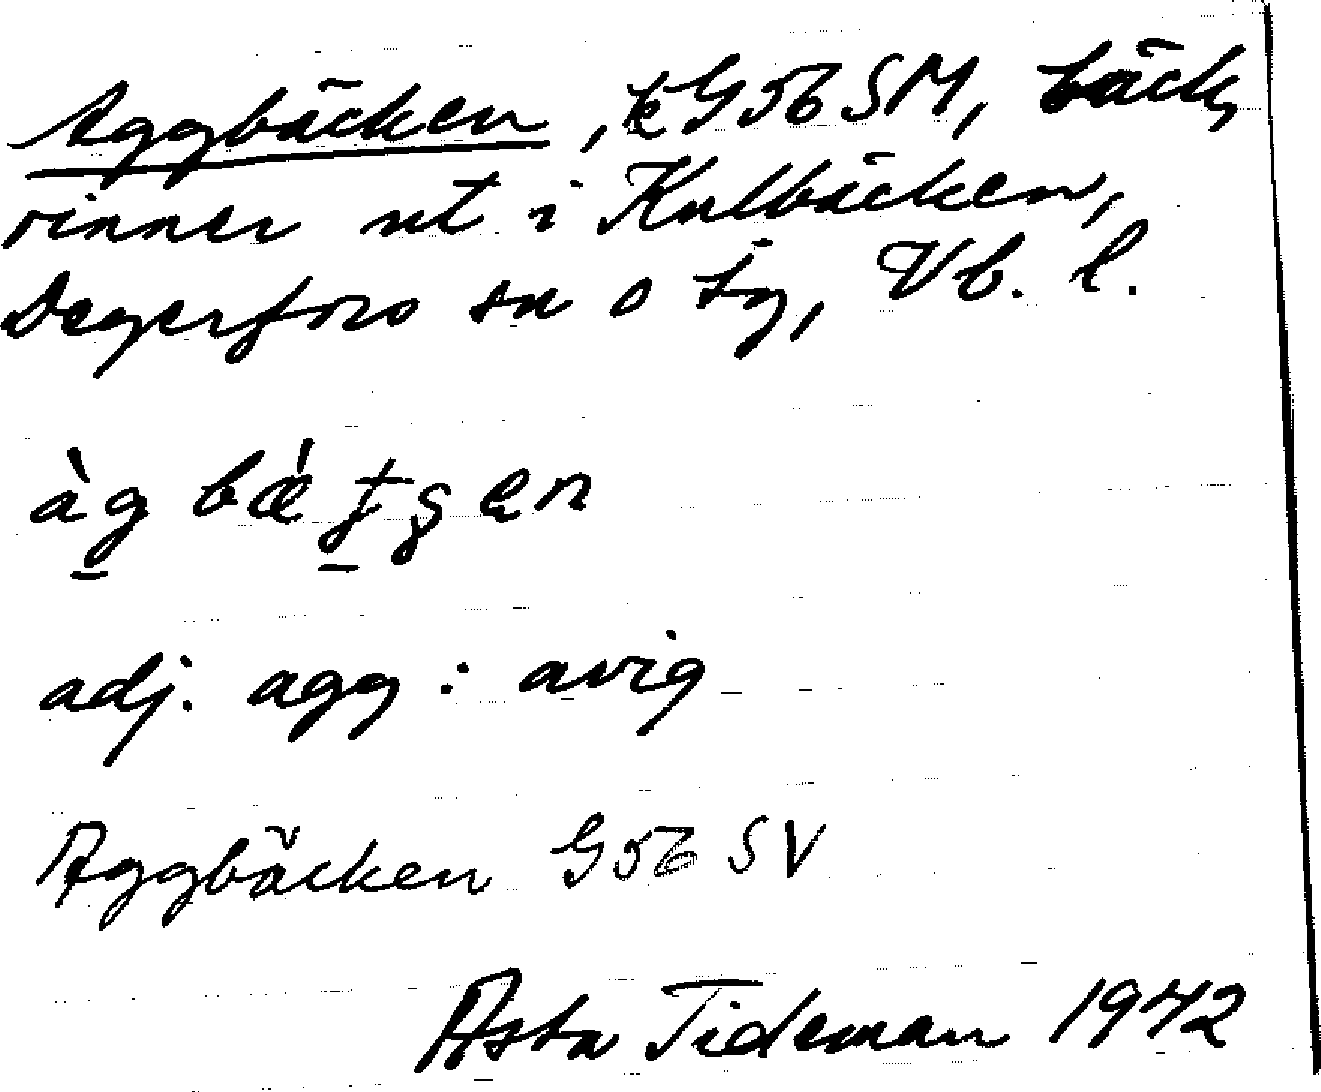 Aggbäcken, k G56 SM, bäck,
rinner ut i Kulbäcken,
Degerfors sn o tg, Vb. l.
àg bǽ
adj. agg : avig
Aggbäcken G56 SV
Asta Tideman 1942